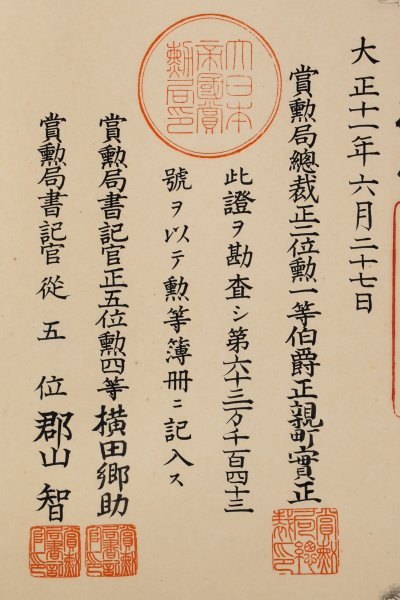 大正十一年六月二十七日
賞勲局總裁正二位勲一等伯爵正親町實正
此證ヲ勘査シ第六十三万千百四十三
號ヲ以テ勲等簿册ニ記入ス
賞勲局書記官正五位勲四等横田郷助
賞勲局書記官從五位郡山智
大日本
帝國賞
勲局印
賞勲
局總
裁印